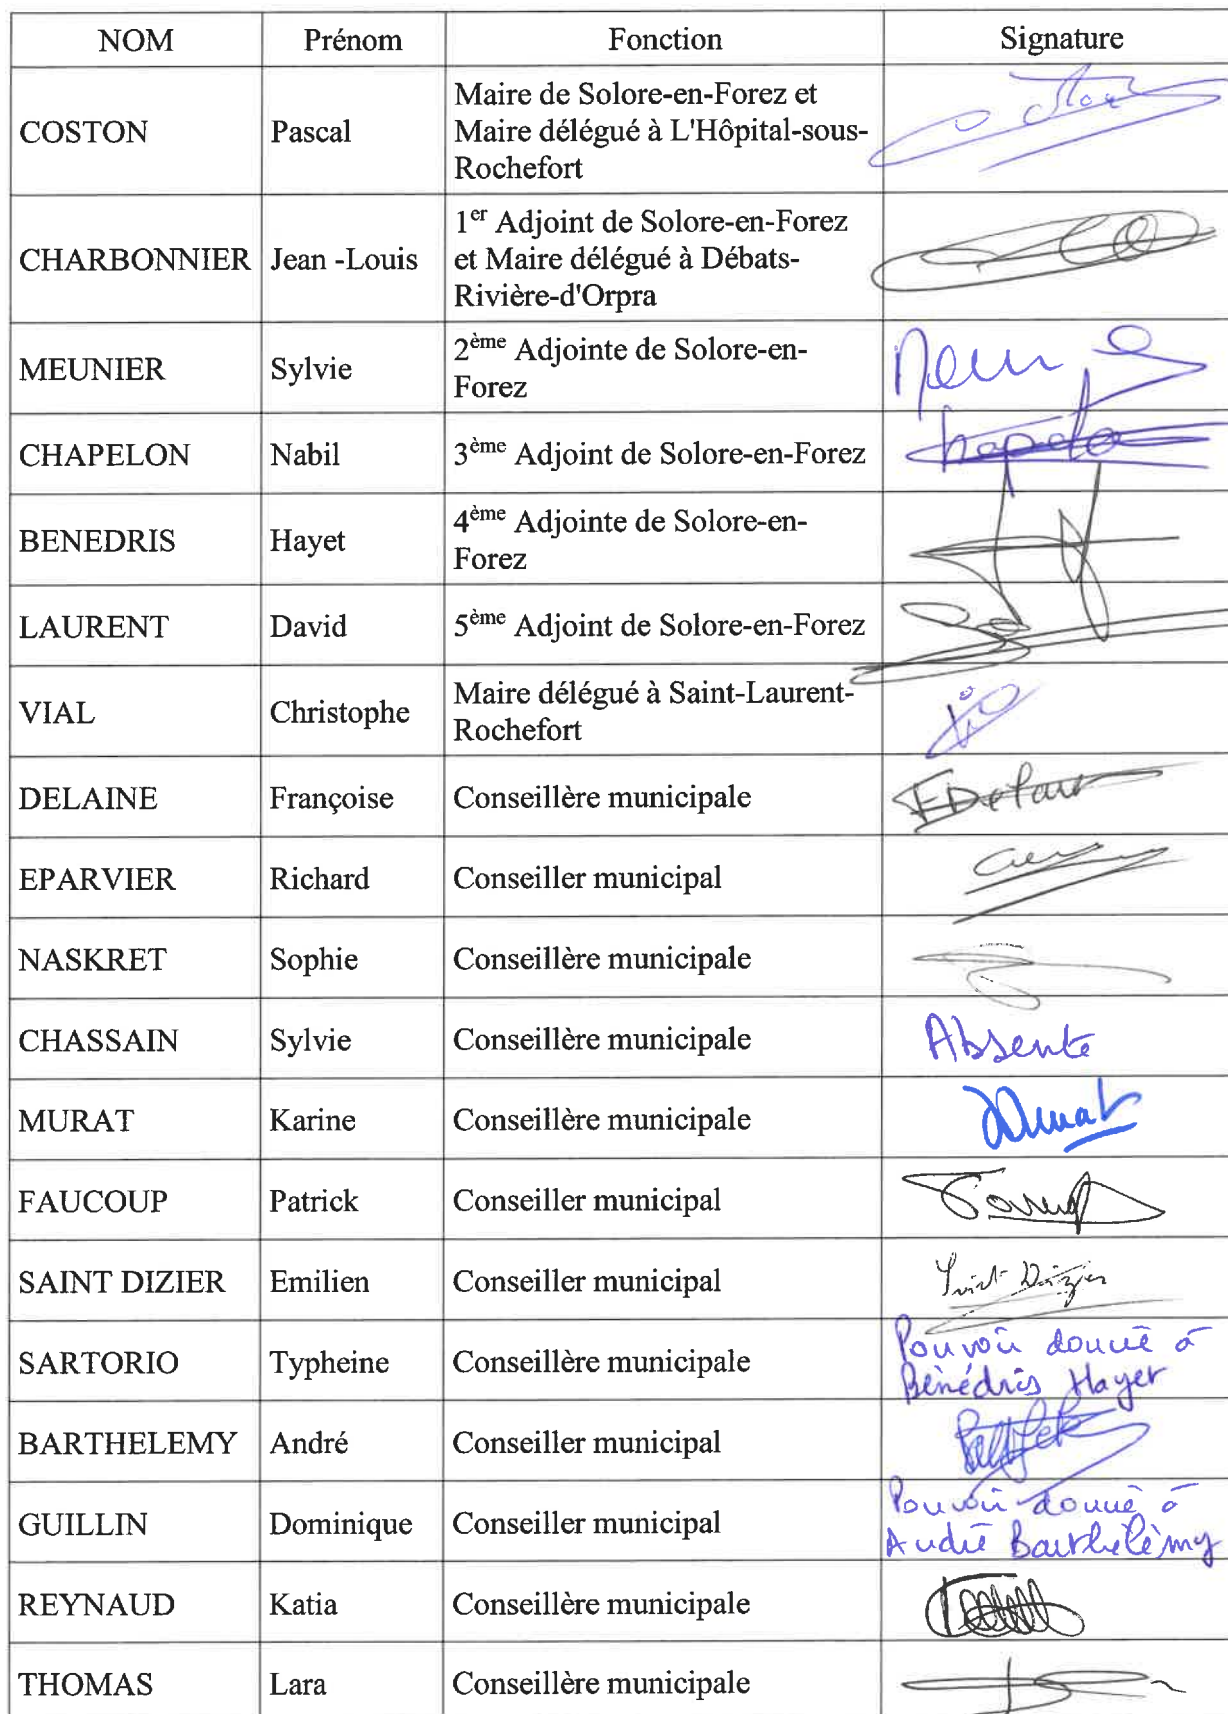 NOM Prénom Fonction Signature
COSTON Pascal Maire de Solore-en-Forez et
Maire délégué à L'Hôpital-sous-
Rochefort
CHARBONNIER Jean -Louis 1er Adjoint de Solore-en-Forez
et Maire délégué à Débats-
Rivière-d'Orpra
MEUNIER Sylvie 2ème Adjointe de Solore-en-
Forez
CHAPELON Nabil 3ème Adjoint de Solore-en-Forez
BENEDRIS Hayet 4ème Adjointe de Solore-en-
Forez
LAURENT David 5ème Adjoint de Solore-en-Forez
VIAL Christophe Maire délégué à Saint-Laurent-
Rochefort
DELAINE Françoise Conseillère municipale
EPARVIER Richard Conseiller municipal
NASKRET Sophie Conseillère municipale
CHASSAIN Sylvie Conseillère municipale Absente
MURAT Karine Conseillère municipale
FAUCOUP Patrick Conseiller municipal
SAINT DIZIER Emilien Conseiller municipal Saint Dizier
SARTORIO Typheine Conseillère municipale Pouvoir donné à
Bénédris Hayet
BARTHELEMY André Conseiller municipal
GUILLIN Dominique Conseiller municipal Pouvoir donné à
André Barthélèmy
REYNAUD Katia Conseillère municipale
THOMAS Lara Conseillère municipale